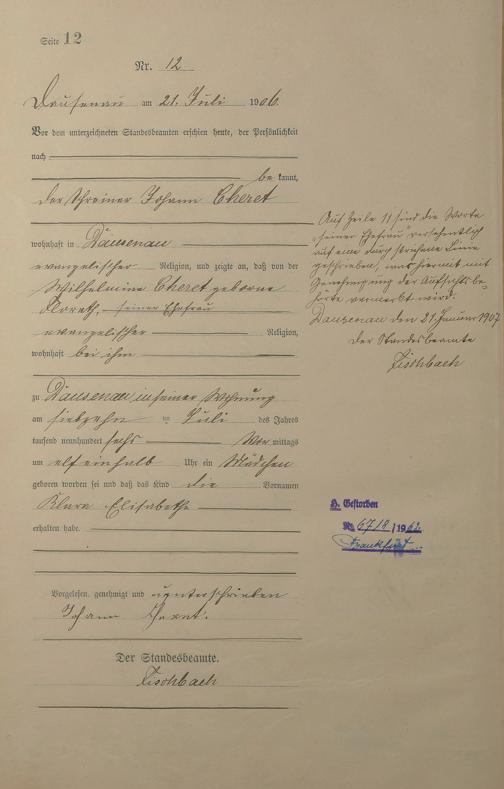 Seite 12
Nr. 12
Dausenau am 21. Juli 1906.
Vor dem unterzeichneten Standesbeamten erschien heute, der Persönlichkeit
nach
be kannt,
der Schreiner Johann Cheret
wohnhaft in Dausenau
evangelischer Religion, und zeigte an, daß von der
Wilhelmine Cheret geborene
Floreth, seiner Ehefrau
evangelischer Religion,
wohnhaft bei ihm
zu Dausenau in seiner Wohnung
am siebzehn ten Juli des Jahres
tausend neunhundert sechs Vor mittags
um elf einhalb Uhr ein Mädchen
geboren worden sei und daß das Kind die Vornamen
Klara Elisabetha
erhalten habe.
Vorgelesen, genehmigt und unterschrieben
Johann
Der Standesbeamte.
Fischbach
Auf Zeile 11 sind die Worte
"seiner Ehefrau" versehentlich
auf eine durchstrichene Linie
geschrieben, was hiermit mit
Genehmigung der Aufsichtsbe-
hörde vermerkt wird.
Dausenau den 21. Januar 1907
Der Standesbeamte
Fischbach
Gestorben
6718/1962
Frankfurt